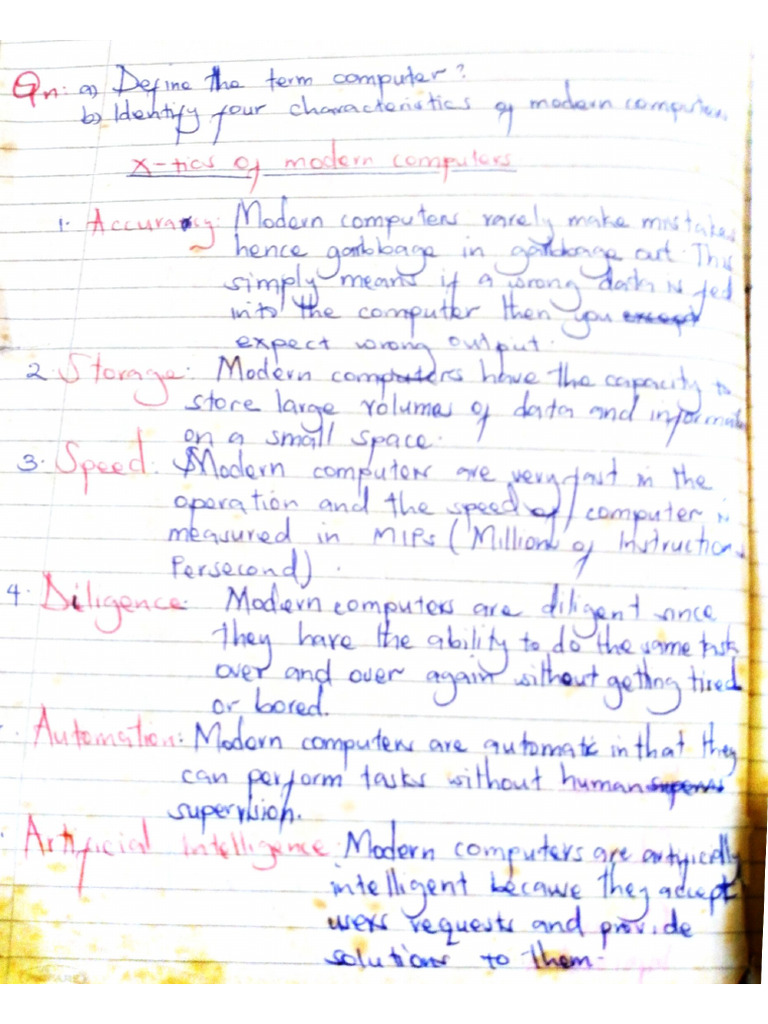 Qn: a) Define the term computer?
b) Identify four characteristics of modern computers
X-tics of modern computers
1. Accuracy: Modern computers rarely make mistakes
hence garbbage in garbbage out. This
simply means if a wrong data is fed
into the computer then you
expect wrong output.
2. Storage: Modern computers have the capacity to
store large volumes of data and information
on a small space.
3. Speed: Modern computers are very fast in the
operation and the speed of computer is
measured in MIPs (Millions of Instructions
Persecond).
4. Diligence: Modern computers are diligent since
they have the ability to do the same task
over and over again without getting tired
or bored.
Automation: Modern computers are automatic in that they
can perform tasks without human
supervision.
Artificial intelligence: Modern computers are artificially
intelligent because they accept
users requests and provide
solutions to them.